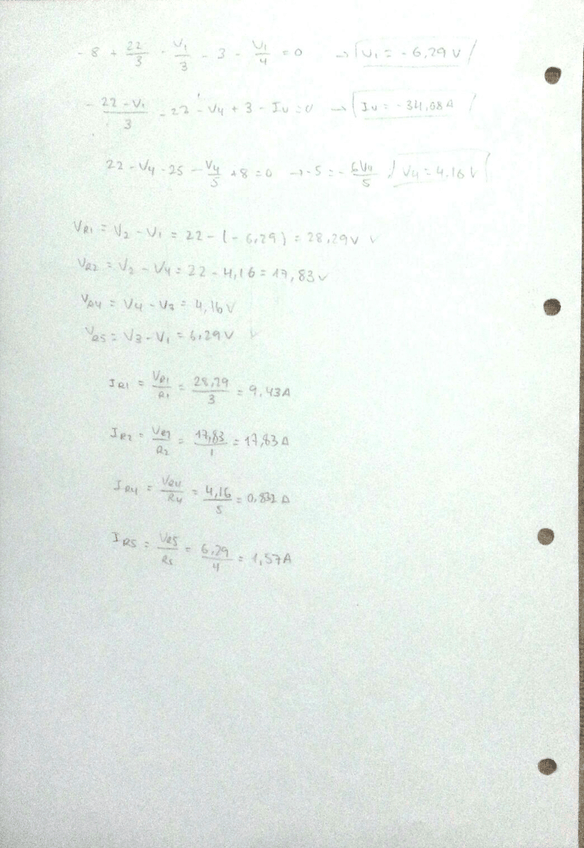 - 8 + 22/3 - V1/3 - 3 - V1/4 = 0 → V1 = - 6,29 V
- 22 - V1/3 - 22 - V4 + 3 - Iu = 0 → Iu = - 34,68 A
22 - V4 - 25 - V4/5 + 8 = 0 → - 5 = - 6V4/5 V4 = 4,16 V
VR1 = V2 - V1 = 22 - (- 6,29) = 28,29 V
VR2 = V2 - V4 = 22 - 4,16 = 17,83 V
VR4 = V4 - V3 = 4,16 V
VR5 = V3 - V1 = 6,29 V
IR1 = VR1/R1 = 28,29/3 = 9,43 A
IR2 = VR2/R2 = 17,83/1 = 17,83 A
IR4 = VR4/R4 = 4,16/5 = 0,832 A
IR5 = VR5/R5 = 6,29/4 = 1,57 A